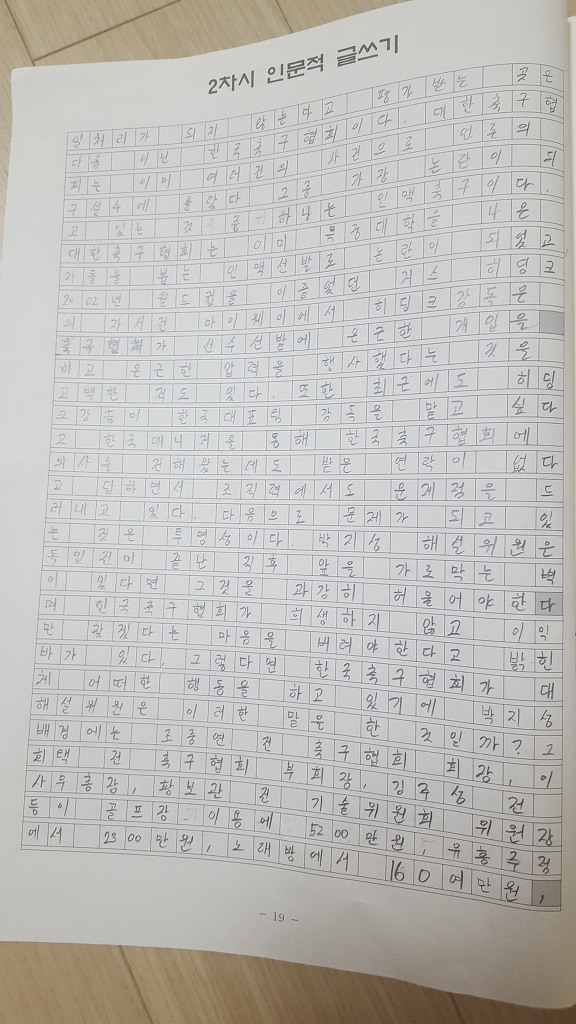 2차시 인문적 글쓰기
일처리가 되지 않는다고 평가 받는 곳은
다름 아닌 한국축구협회이다. 대한축구협
회는 이미 여러건의 사건으로 언론의
구설수에 올랐다. 그중 가장 논란이 되
고 있는 것 중 하나는 인맥축구이다.
대한축구협회는 이미 특정대학을 나온
자들을 뽑는 인맥선발로 논란이 되었고
2002년 월드컵을 이끌었던 거스 히딩크
의 자서전 마이웨이에서 히딩크감독은
축구협회가 선수선발에 은근한 개입을
하고 은근한 압력을 행사했다는 것을
고백한 적도 있다. 또한 최근에도 히딩
크감독이 한국대표팀 감독을 맡고 싶다
고 한국매니저를 통해 한국축구협회에
의사를 전해왔는데도 받은 연락이 없다
고 답하면서 조직력에서도 문제점을 드
러내고 있다. 다음으로 문제가 되고 있
는 것은 투명성이다. 박지성 해설위원은
독일전이 끝난 직후 앞을 가로막는 벽
이 있다면 그것을 과감히 허물어야한다
며 한국축구협회가 희생하지 않고 이익
만 찾겠다는 마음을 버려야한다고 밝힌
바가 있다. 그렇다면 한국축구협회가 대
체 어떠한 행동을 하고 있기에 박지성
해설위원은 이러한 말을 한 것일까? 그
배경에는 조중연 전 축구협회 회장, 이
회택 전 축구협회 부회장, 김주성 전
사무총장, 황보관 전 기술위원회 위원장
등이 골프장 이용에 5200만원, 유흥주점
에서 2300만원, 노래방에서 160여만원,
- 19 -